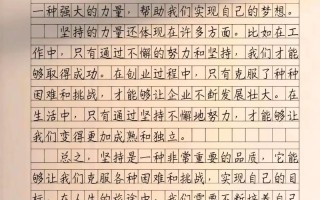 一种强大的力量，帮助我们实现自己的梦想。
坚持的力量还体现在许多方面。比如在工
作中，只有通过不懈的努力和坚持，我们才能
够取得成功。在创业过程中，只有克服了种种
困难和挑战，才能够让企业不断发展壮大。在
生活中，只有通过坚持不懈地努力，才能够让
我们变得更加成熟和独立。
总之，坚持是一种非常重要的品质，它能
够让我们克服各种困难和挑战，实现自己的目
标。在人生的旅途中，我们需要不断培养自己